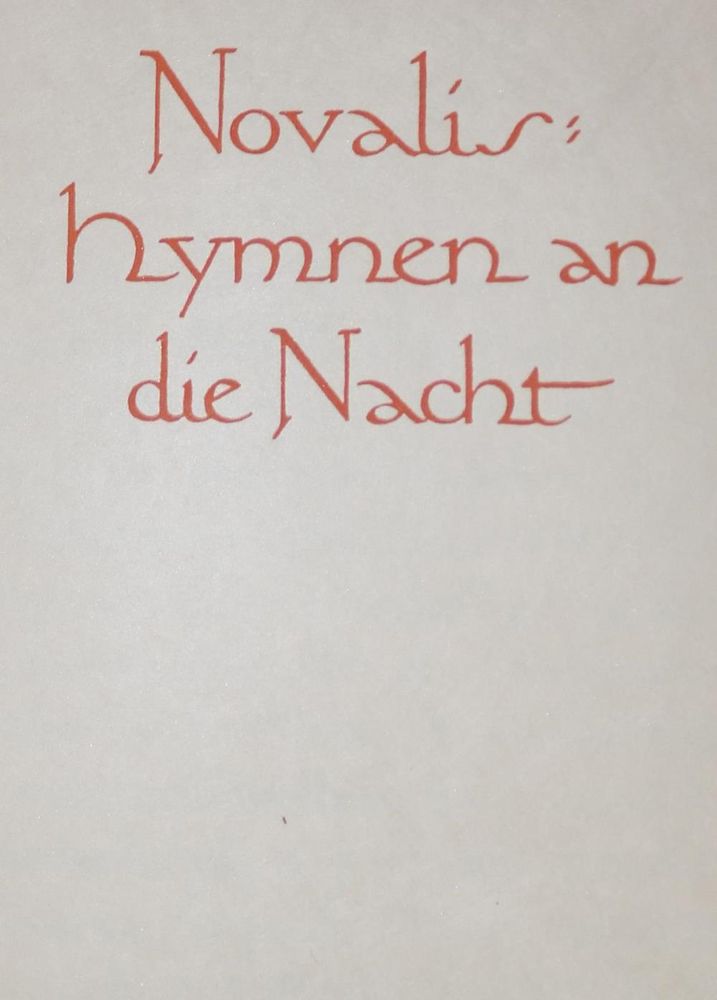 Novalis:
Hymnen an
die Nacht